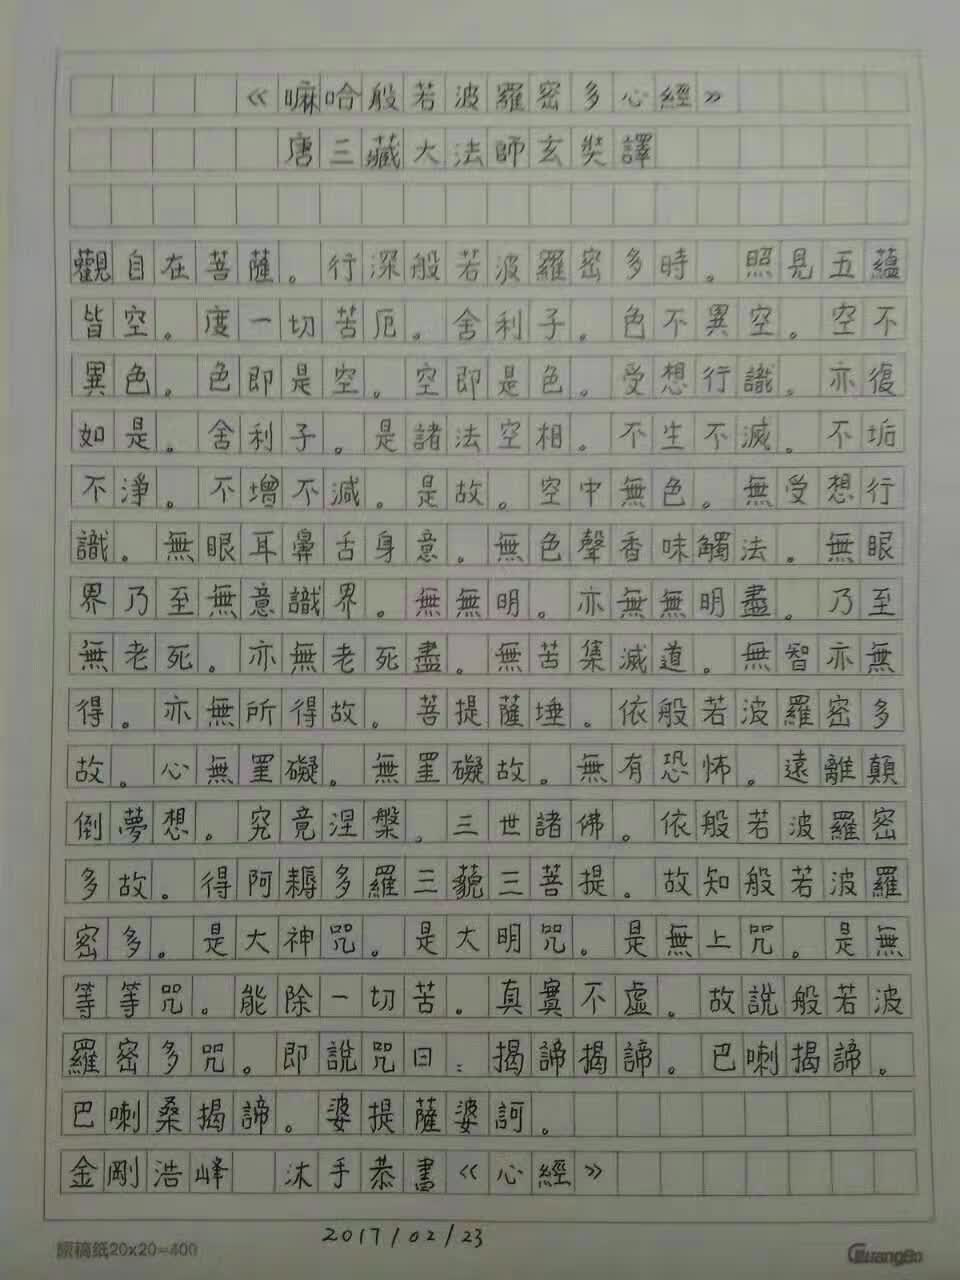 《嘛哈般若波羅密多心經》
唐三藏大法師玄奘譯
觀自在菩薩。行深般若波羅密多時。照見五蘊
皆空。度一切苦厄。舍利子。色不異空。空不
異色。色即是空。空即是色。受想行識。亦復
如是。舍利子。是諸法空相。不生不滅。不垢
不淨。不增不減。是故。空中無色。無受想行
識。無眼耳鼻舌身意。無色聲香味觸法。無眼
界乃至無意識界。無無明。亦無無明盡。乃至
無老死。亦無老死盡。無苦集滅道。無智亦無
得。亦無所得故。菩提薩埵。依般若波羅密多
故。心無罣礙。無罣礙故。無有恐怖。遠離顛
倒夢想。究竟涅槃。三世諸佛。依般若波羅密
多故。得阿耨多羅三藐三菩提。故知般若波羅
密多。是大神咒。是大明咒。是無上咒。是無
等等咒。能除一切苦。真實不虛。故說般若波
羅密多咒。即說咒曰：揭諦揭諦。巴喇揭諦。
巴喇桑揭諦。婆提薩婆訶。
金剛浩峰 沐手恭書《心經》
2017/02/23
原稿紙20x20=400
GuangBo